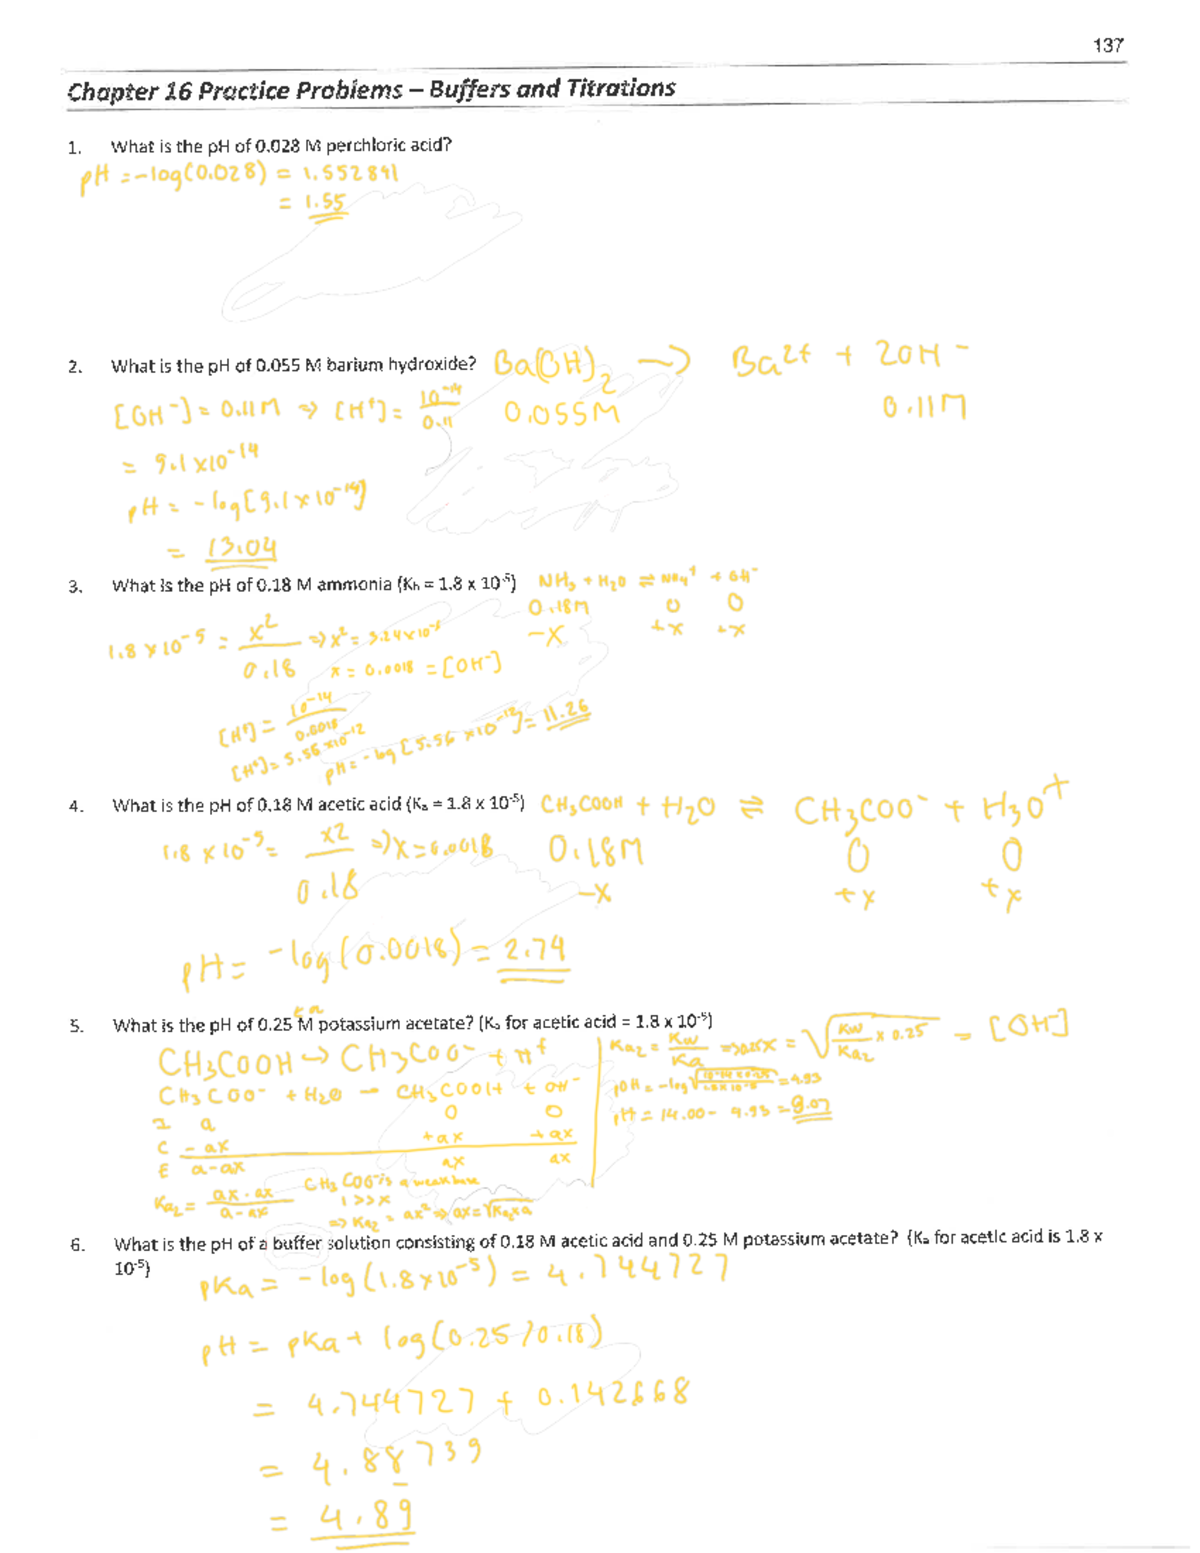 137
Chapter 16 Practice Problems – Buffers and Titrations
1. What is the pH of 0.028 M perchloric acid?
pH = -log(0.028) = 1.552841
= 1.55
2. What is the pH of 0.055 M barium hydroxide? Ba(OH)2 → Ba2+ + 2OH-
[OH-] = 0.11M ⇒ [H+] = 10^-14 / 0.11 0.055M 0.11M
= 9.1x10^-14
pH = -log[9.1x10^-14]
= 13.04
3. What is the pH of 0.18 M ammonia (Kb = 1.8 x 10^-5) NH3 + H2O ⇌ NH4+ + OH-
0.18M 0 0
1.8 x 10^-5 = x^2 / 0.18 ⇒ x^2 = 3.24x10^-6 -x +x +x
x = 0.0018 = [OH-]
[H+] = 10^-14 / 0.0018
[H+] = 5.56 x10^-12 pH = -log[5.56 x10^-12] = 11.26
4. What is the pH of 0.18 M acetic acid (Ka = 1.8 x 10^-5) CH3COOH + H2O ⇌ CH3COO- + H3O+
1.8 x 10^-5 = x2 / 0.18 ⇒ x = 0.0018 0.18M 0 0
-x +x +x
pH = -log(0.0018) = 2.74
5. What is the pH of 0.25 M potassium acetate? (Ka for acetic acid = 1.8 x 10^-5)
CH3COOH → CH3COO- + H+ Ka2 = Kw / Ka = √(Kw / Ka2 x 0.25) = [OH]
CH3COO- + H2O — CH3COOH + OH- pOH = -log = 4.93
I a 0 0 pH = 14.00 - 4.93 = 9.07
C - ax +ax +ax
E a-ax ax ax
Ka2 = ax · ax / a - ax CH3COO- is a weak base
1 >> x
⇒ Ka2 = ax^2 ⇒ ax = √Ka2xa
6. What is the pH of a buffer solution consisting of 0.18 M acetic acid and 0.25 M potassium acetate? (Ka for acetic acid is 1.8 x
10^-5)
pKa = -log(1.8x10^-5) = 4.744727
pH = pKa + log(0.25/0.18)
= 4.744727 + 0.142668
= 4.88739
= 4.89